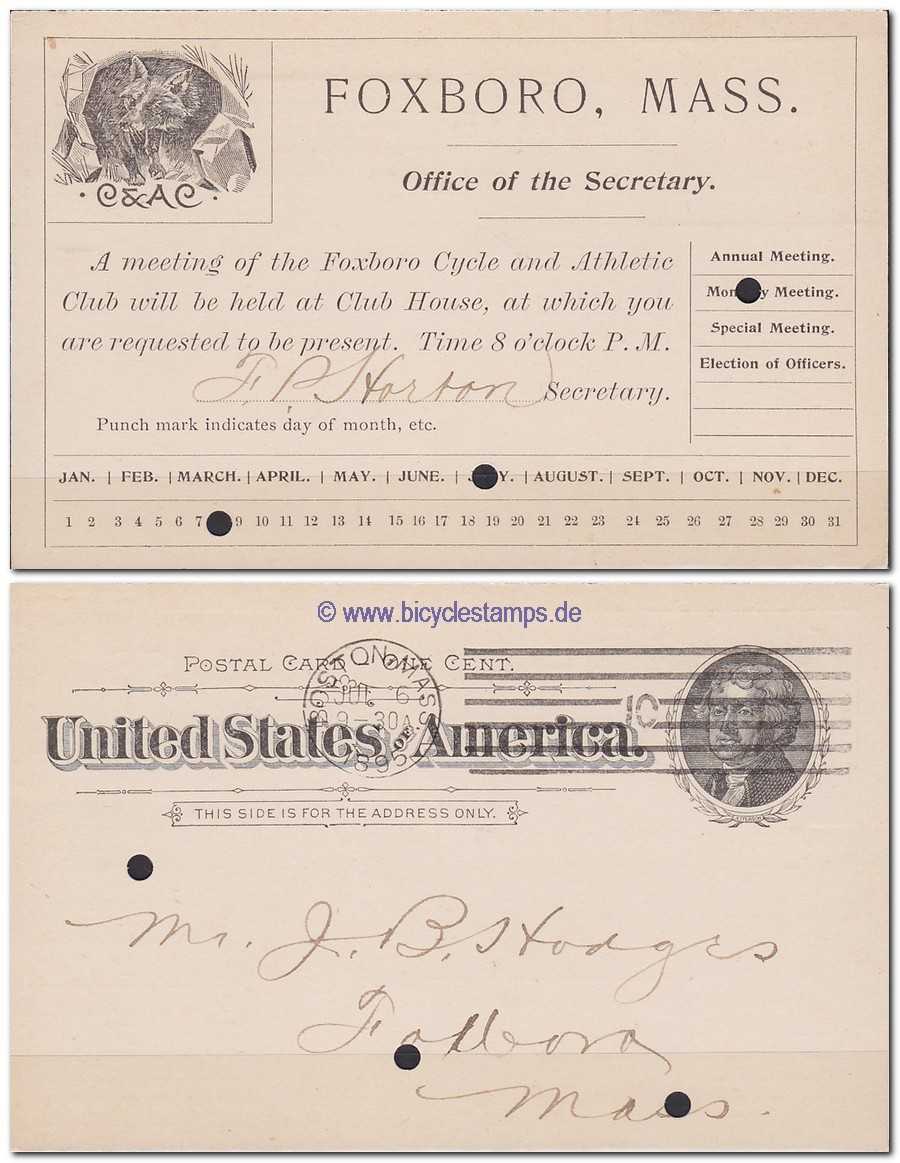 C&AC
FOXBORO, MASS.
Office of the Secretary.
A meeting of the Foxboro Cycle and Athletic
Club will be held at Club House, at which you
are requested to be present. Time 8 o'clock P. M.
F. P. Horton Secretary.
Punch mark indicates day of month, etc.
Annual Meeting.
Mon y Meeting.
Special Meeting.
Election of Officers.
JAN. | FEB. | MARCH. | APRIL. | MAY. | JUNE. | J Y. | AUGUST. | SEPT. | OCT. | NOV. | DEC.
1 2 3 4 5 6 7 9 10 11 12 13 14 15 16 17 18 19 20 21 22 23 24 25 26 27 28 29 30 31
© www.bicyclestamps.de
POSTAL CARD - ONE CENT.
United States of America.
BOSTON, MASS.
JUL 6
9-30A
1895
10
THIS SIDE IS FOR THE ADDRESS ONLY.
JEFFERSON
Mr. J. B. Hodges
Foxboro
Mass.